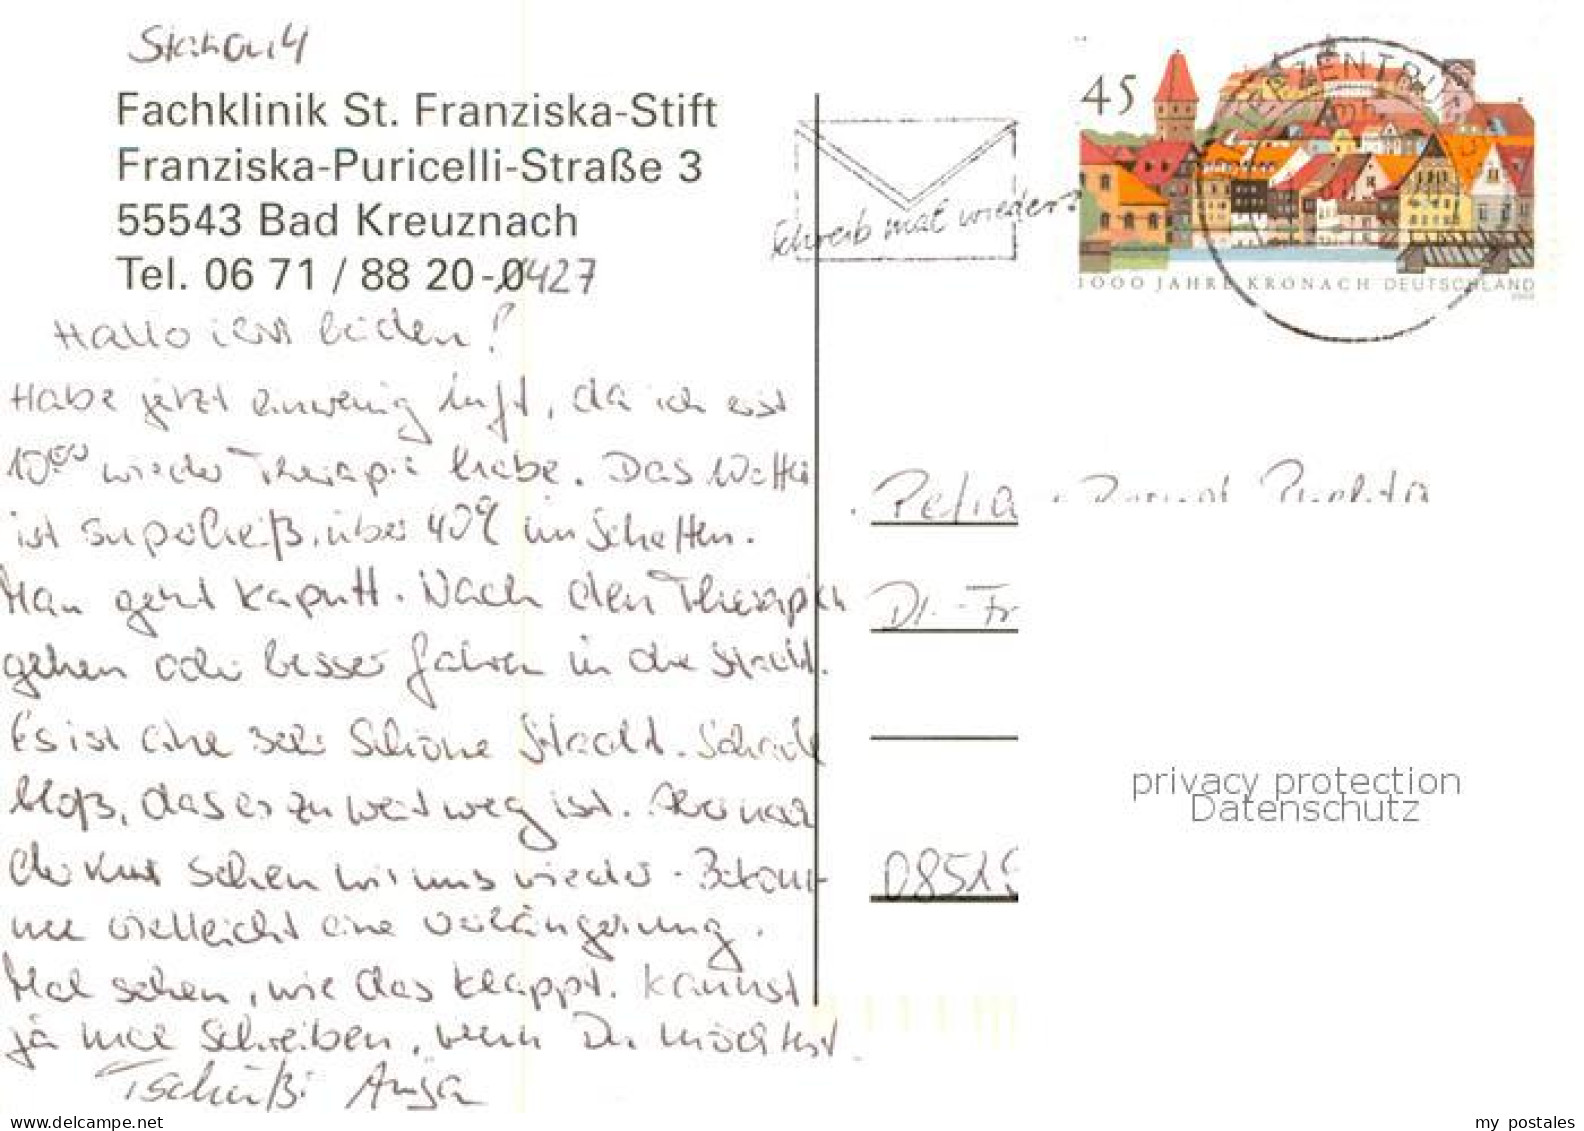 Station 4
Fachklinik St. Franziska-Stift
Franziska-Puricelli-Straße 3
55543 Bad Kreuznach
Tel. 06 71 / 88 20-0427
Hallo ihr beiden!
Habe jetzt einwenig Luft, da ich erst
10⁰⁰ wieder Therapie habe. Das Wetter
ist superheiß, über 40°C im Schatten.
Man geht kaputt. Nach den Therapien
gehen oder besser fahren in die Stadt.
Es ist eine sehr schöne Stadt. Schade
bloß, das es zu weit weg ist. Aber nach
der Kur sehen wir uns wieder. Bekom-
me vielleicht eine Verlängerung.
Mal sehen, wie das klappt. Kannst
ja mal schreiben, wenn Du möchtest
Tschüßi Anja
Schreib mal wieder!
BRIEFZENTRUM
45
1000 JAHRE KRONACH DEUTSCHLAND
2003
Petra
Dr.-Fr
privacy protection
Datenschutz
0851
www.delcampe.net
my postales